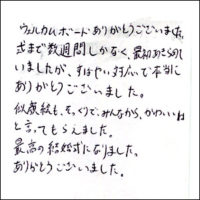 ウェルカムボードありがとうございました。
式まで数週間しかなく、最初あきらめて
いましたが、すばやい対応で本当に
ありがとうございました。
似顔絵も、そっくりで、みんなから、かわいいね
と言ってもらえました。
最高の結婚式になりました。
ありがとうございました。